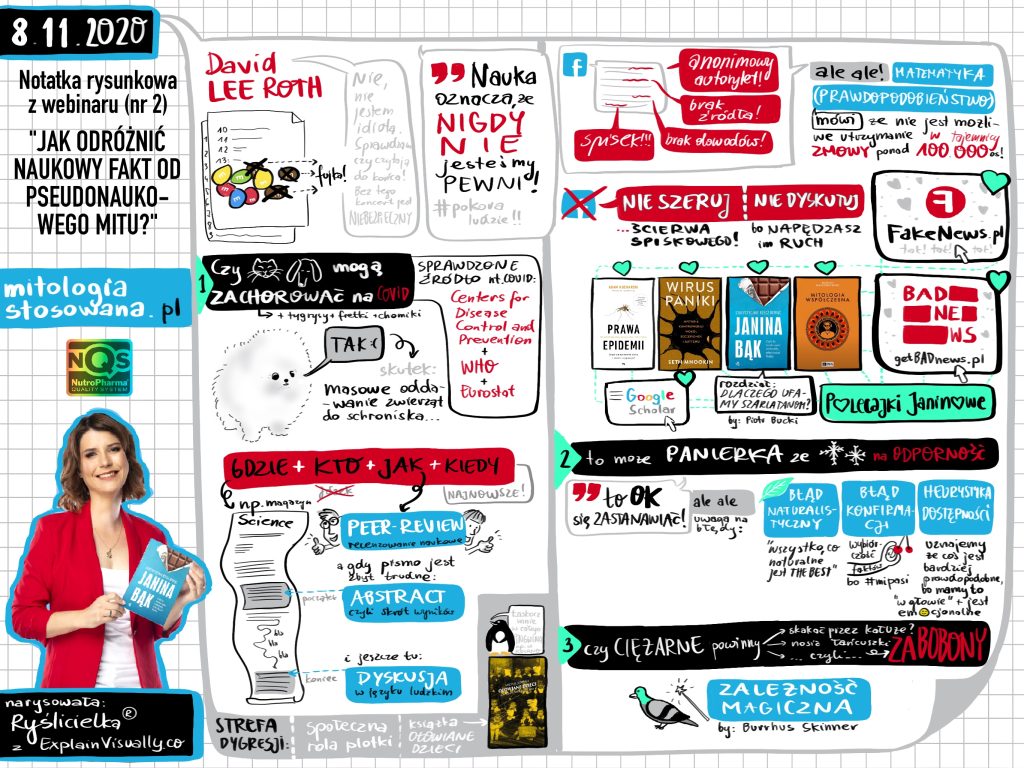 8.11.2020
Notatka rysunkowa
z webinaru (nr 2)
"JAK ODRÓŻNIĆ
NAUKOWY FAKT OD
PSEUDONAUKO-
WEGO MITU?"
mitologia
stosowana.pl
NQS
NutroPharma
QUALITY SYSTEM
JANINA
BĄK
narysowała:
Ryślicielka®
z ExplainVisually.co
David
LEE ROTH
10
11
12
13
fujka!
1
2
3
Nie,
nie
jestem
idiotą.
Sprawdzam
czy czytają
do końca!
Bez tego
koncert jest
NIEBEZPIECZNY
Nauka
oznacza, że
NIGDY
NIE
jesteśmy
PEWNI!
#pokora
ludzie!!
1 Czy mogą
ZACHOROWAĆ na COVID
+ tygrysy + fretki + chomiki
TAK :(
skutek:
masowe odda-
wanie zwierząt
do schroniska...
SPRAWDZONE
ŹRÓDŁO nt. COVID:
Centers for
Disease
Control and
Prevention
+
WHO
+
Eurostat
GDZIE + KTO + JAK + KIEDY
NAJNOWSZE!
np. magazyn
Science
PEER-REVIEW
recenzowanie naukowe
a gdy pismo jest
zbyt trudne:
początek
ABSTRACT
czyli skrót wyników
bla
bla
bla
i jeszcze tu:
koniec
DYSKUSJA
w języku ludzkim
STREFA
DYGRESJI:
społeczna
rola plotki
książka
OŁOWIANE
DZIECI
OŁOWIANE DZIECI
f
anonimowy
autorytet!!
brak
źródła!
brak dowodów!
spisek!!!
ale ale!
MATEMATYKA
(PRAWDOPODOBIEŃSTWO)
mówi że nie jest możli-
we utrzymanie w tajemnicy
ZMOWY ponad 100.000 os!
NIE SZERUJ
NIE DYSKUTUJ
...ŚCIERWA
SPISKOWEGO!
bo NAPĘDZASZ
im RUCH
F
FakeNews.pl
tok! tok! tok!
PRAWA
EPIDEMII
WIRUS
PANIKI
SETH MNOOKIN
JANINA
BĄK
MITOLOGIA
WSPÓŁCZESNA
BAD
NE
WS
getBADnews.pl
Google
Scholar
rozdział:
DLACZEGO UFA-
MY SZARLATANOM?
by: Piotr Bucki
POLECAJKI JANINOWE
2 to może PANIERKA ze na ODPORNOŚĆ
to OK
się ZASTANAWIAĆ!
ale ale
uwaga na
błędy:
BŁĄD
NATURALIS-
TYCZNY
"wszystko, co
naturalne
jest THE BEST"
BŁĄD
KONFIRMA-
CJI
wybiór-
czość
faktów
bo #mipasi
HEURYSTYKA
DOSTĘPNOŚCI
uznajemy
że coś jest
bardziej
prawdopodobne,
bo mamy to
"w głowie" + jest
emocjonalne
3 czy CIĘŻARNE powinny
skakać przez kałuże?
nosić łańcuszki
... czyli...
ZABOBONY
ZALEŻNOŚĆ
MAGICZNA
by: Burrhus Skinner